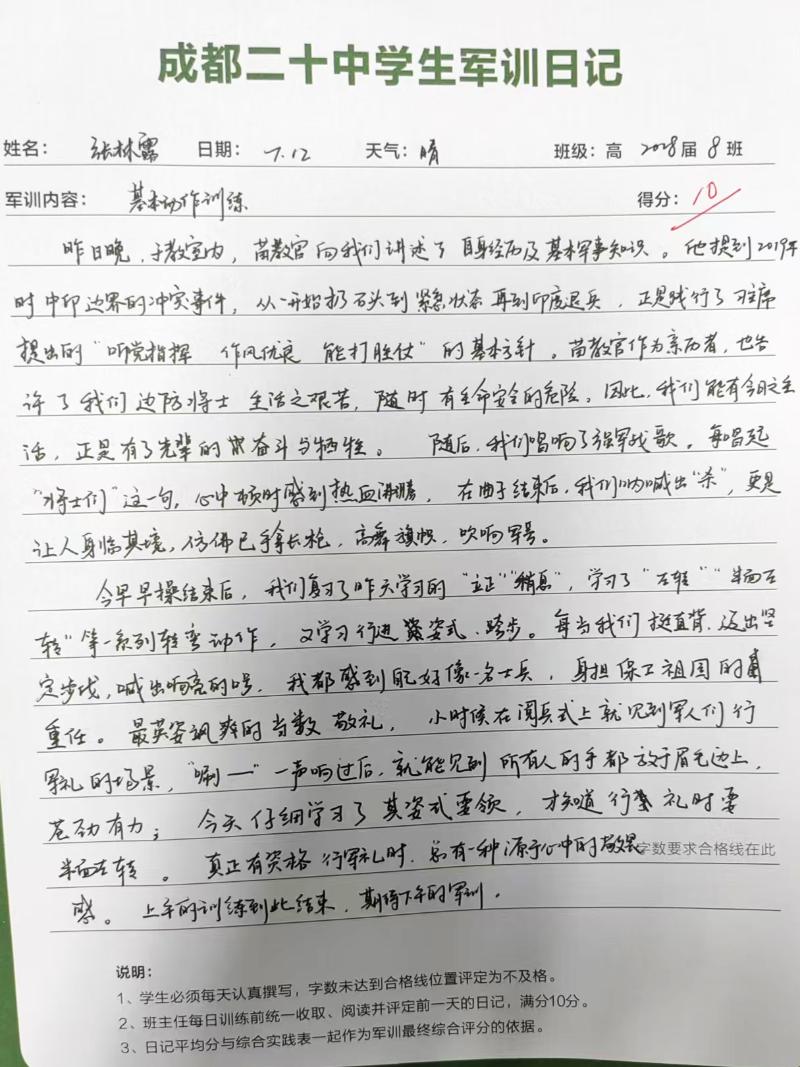 成都二十中学生军训日记
姓名： 张林露 日期： 7.12 天气： 晴 班级：高 2028届 8班
军训内容： 基本动作训练 得分： 10
昨日晚，于教室内，苗教官向我们讲述了自身经历及基本军事知识。他提到2019年
时中印边界的冲突事件，从一开始扔石头到紧急状态再到印度退兵，正是践行了习主席
提出的“听党指挥 作风优良 能打胜仗”的基本方针。苗教官作为亲历者，也告
诉了我们边防将士生活之艰苦，随时有生命安全的危险。因此，我们能有今日之生
话，正是有了先辈的奋斗与牺牲。 随后，我们唱响了强军战歌。每唱起
“将士们”这一句，心中顿时感到热血沸腾，在曲子结束后，我们呐喊出“杀”，更是
让人身临其境，仿佛已手拿长枪，高舞旗帜，吹响军号。
今早早操结束后，我们复习了昨天学习的“立正”“稍息”，学习了“左转”“半面左
转”等一系列转弯动作，又学习行进姿式、跨步。每当我们挺直背，迈出坚
定步伐，喊出响亮的口号，我都感到自己好像一名士兵，身担保卫祖国的
重任。最英姿飒爽的当数敬礼，小时候在阅兵式上就见到军人们行
军礼的场景，“唰—”一声响过后，就能见到所有人的手都放于眉毛边上，
苍劲有力；今天仔细学习了其姿式要领，才知道行军礼时要
半面左转。真正有资格行军礼时，总有一种源于心中的敬畏
字数要求合格线在此
感。上午的训练到此结束，期待下午的军训。
说明：
1、学生必须每天认真撰写，字数未达到合格线位置评定为不及格。
2、班主任每日训练前统一收取、阅读并评定前一天的日记，满分10分。
3、日记平均分与综合实践表一起作为军训最终综合评分的依据。